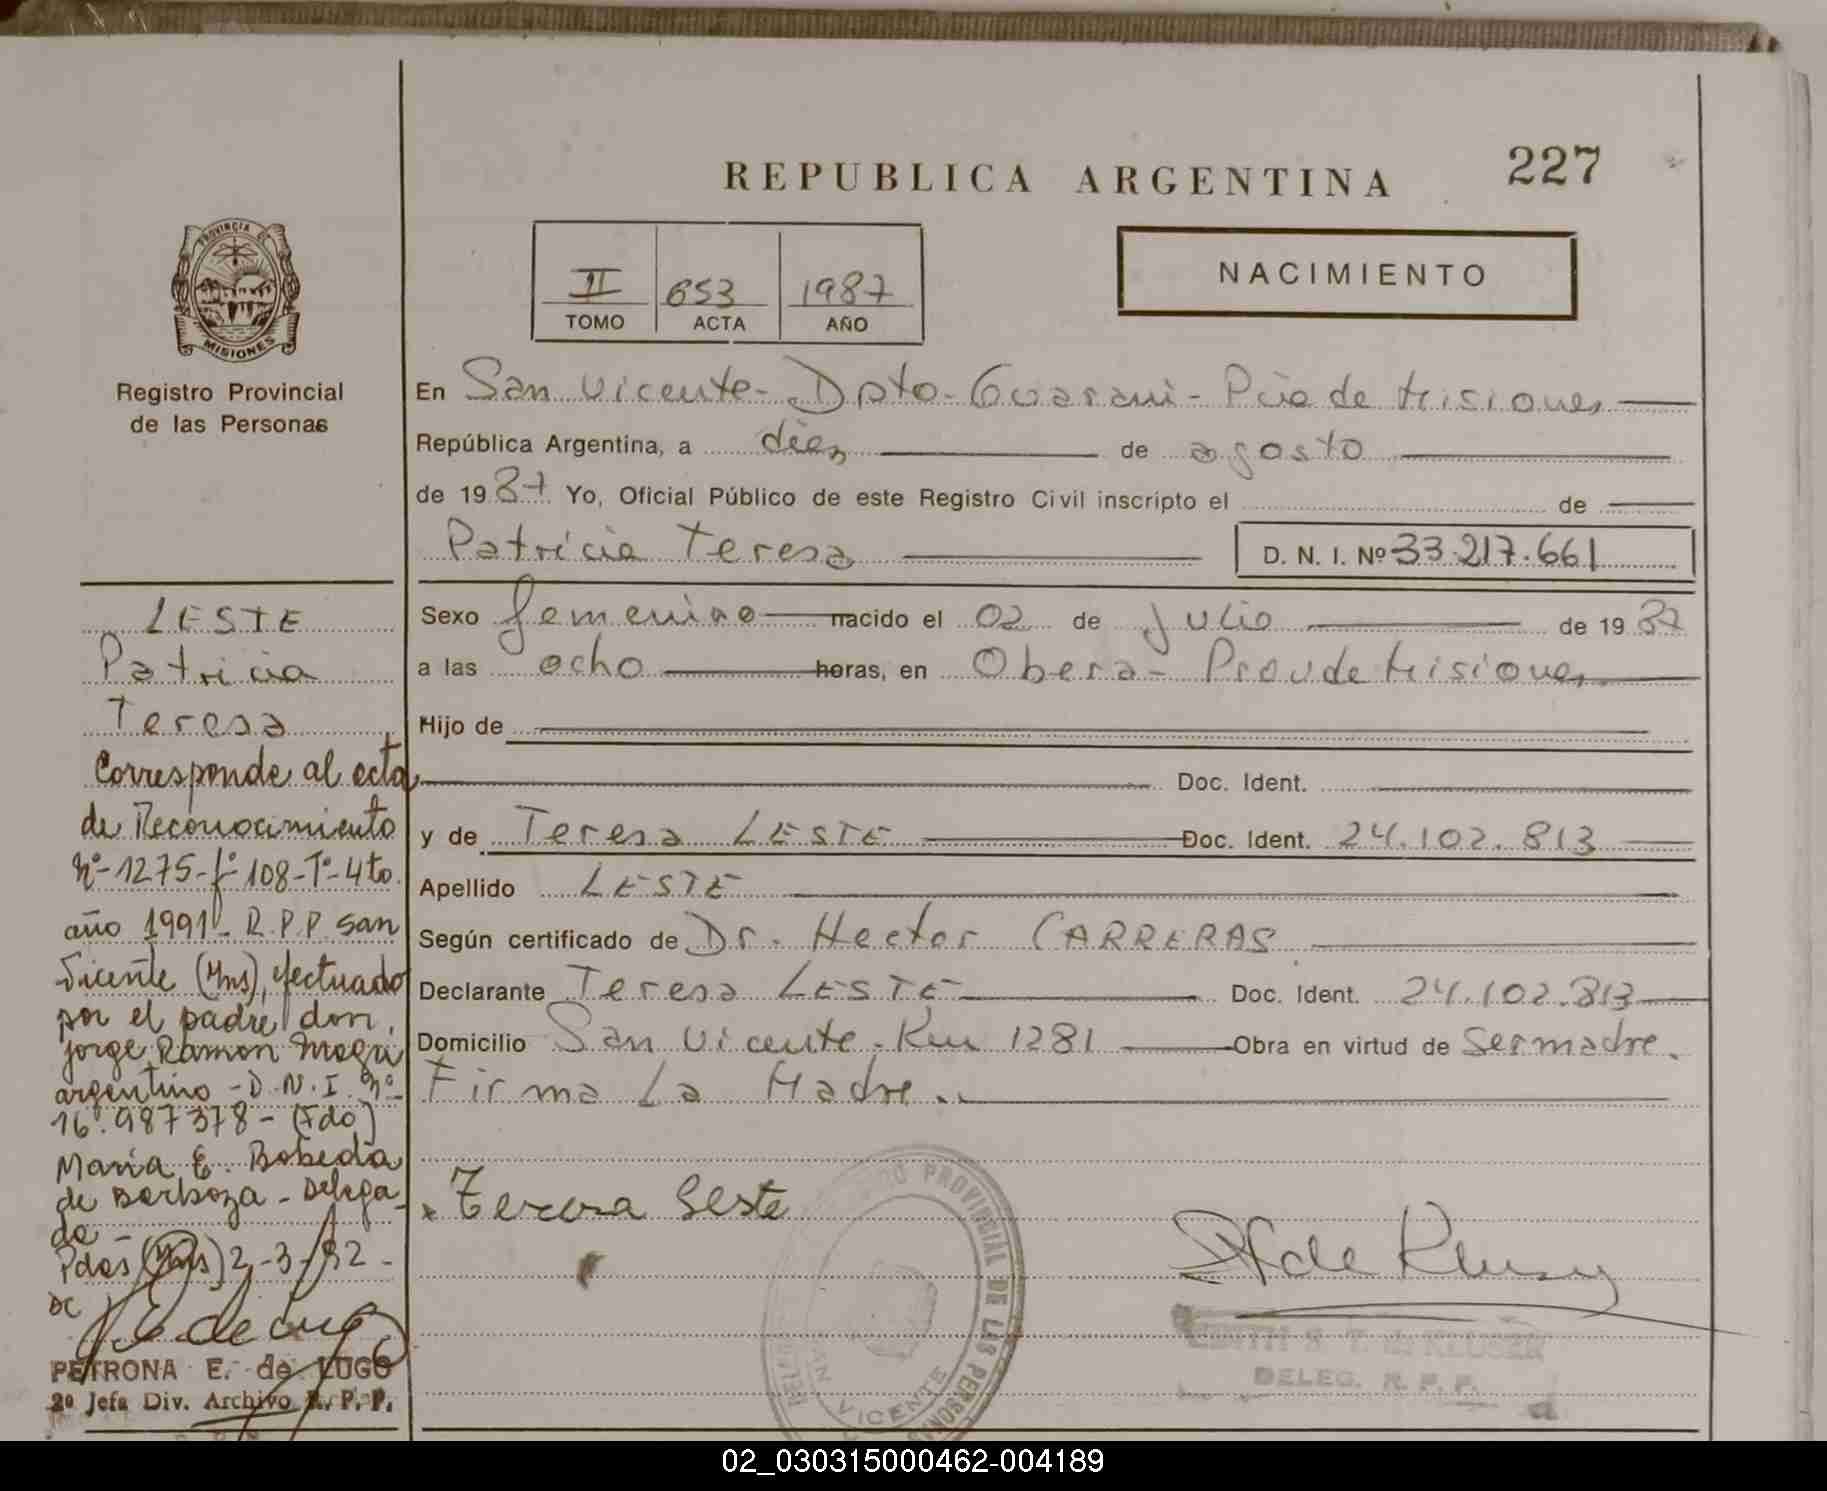 REPUBLICA ARGENTINA
227
II 653 1987
TOMO ACTA AÑO
NACIMIENTO
PROVINCIA DE
MISIONES
Registro Provincial
de las Personas
En San Vicente - Dpto - Guarani - Pcia de Misiones
República Argentina, a diez de agosto
de 1987 Yo, Oficial Público de este Registro Civil inscripto el de
Patricia Teresa
D. N. I. Nº 33.217.661
Sexo femenino nacido el 02 de Julio de 1987
a las ocho horas, en Obera - Prov de Misiones
Hijo de
Doc. Ident.
y de Teresa LESTE Doc. Ident. 24.102.813
Apellido LESTE
Según certificado de Dr. Hector CARRERAS
Declarante Teresa LESTE Doc. Ident. 24.102.813
Domicilio San Vicente - Km 1281 Obra en virtud de Ser madre.
Firma La Madre.
Teresa Leste
LESTE
Patricia
Teresa
Corresponde al acta
de Reconocimiento
Nº-1275-fº-108-Tº-4to.
año 1991- R.P.P. San
Vicente (Mns), efectuado
por el padre don
Jorge Ramon
argentino - D.N.I. Nº-
16.987378- (Fdo)
Maria E. Bobeda
de Barboza - Delega
da -
Pdas (Mns) 2-3-92-
PETRONA E. de LUGO
2º Jefa Div. Archivo R. P. P.
PROVINCIAL DE LAS PERSONAS
SAN VICENTE
EDITH S. T. de KLUSER
DELEG. R. P. P.
02_030315000462-004189